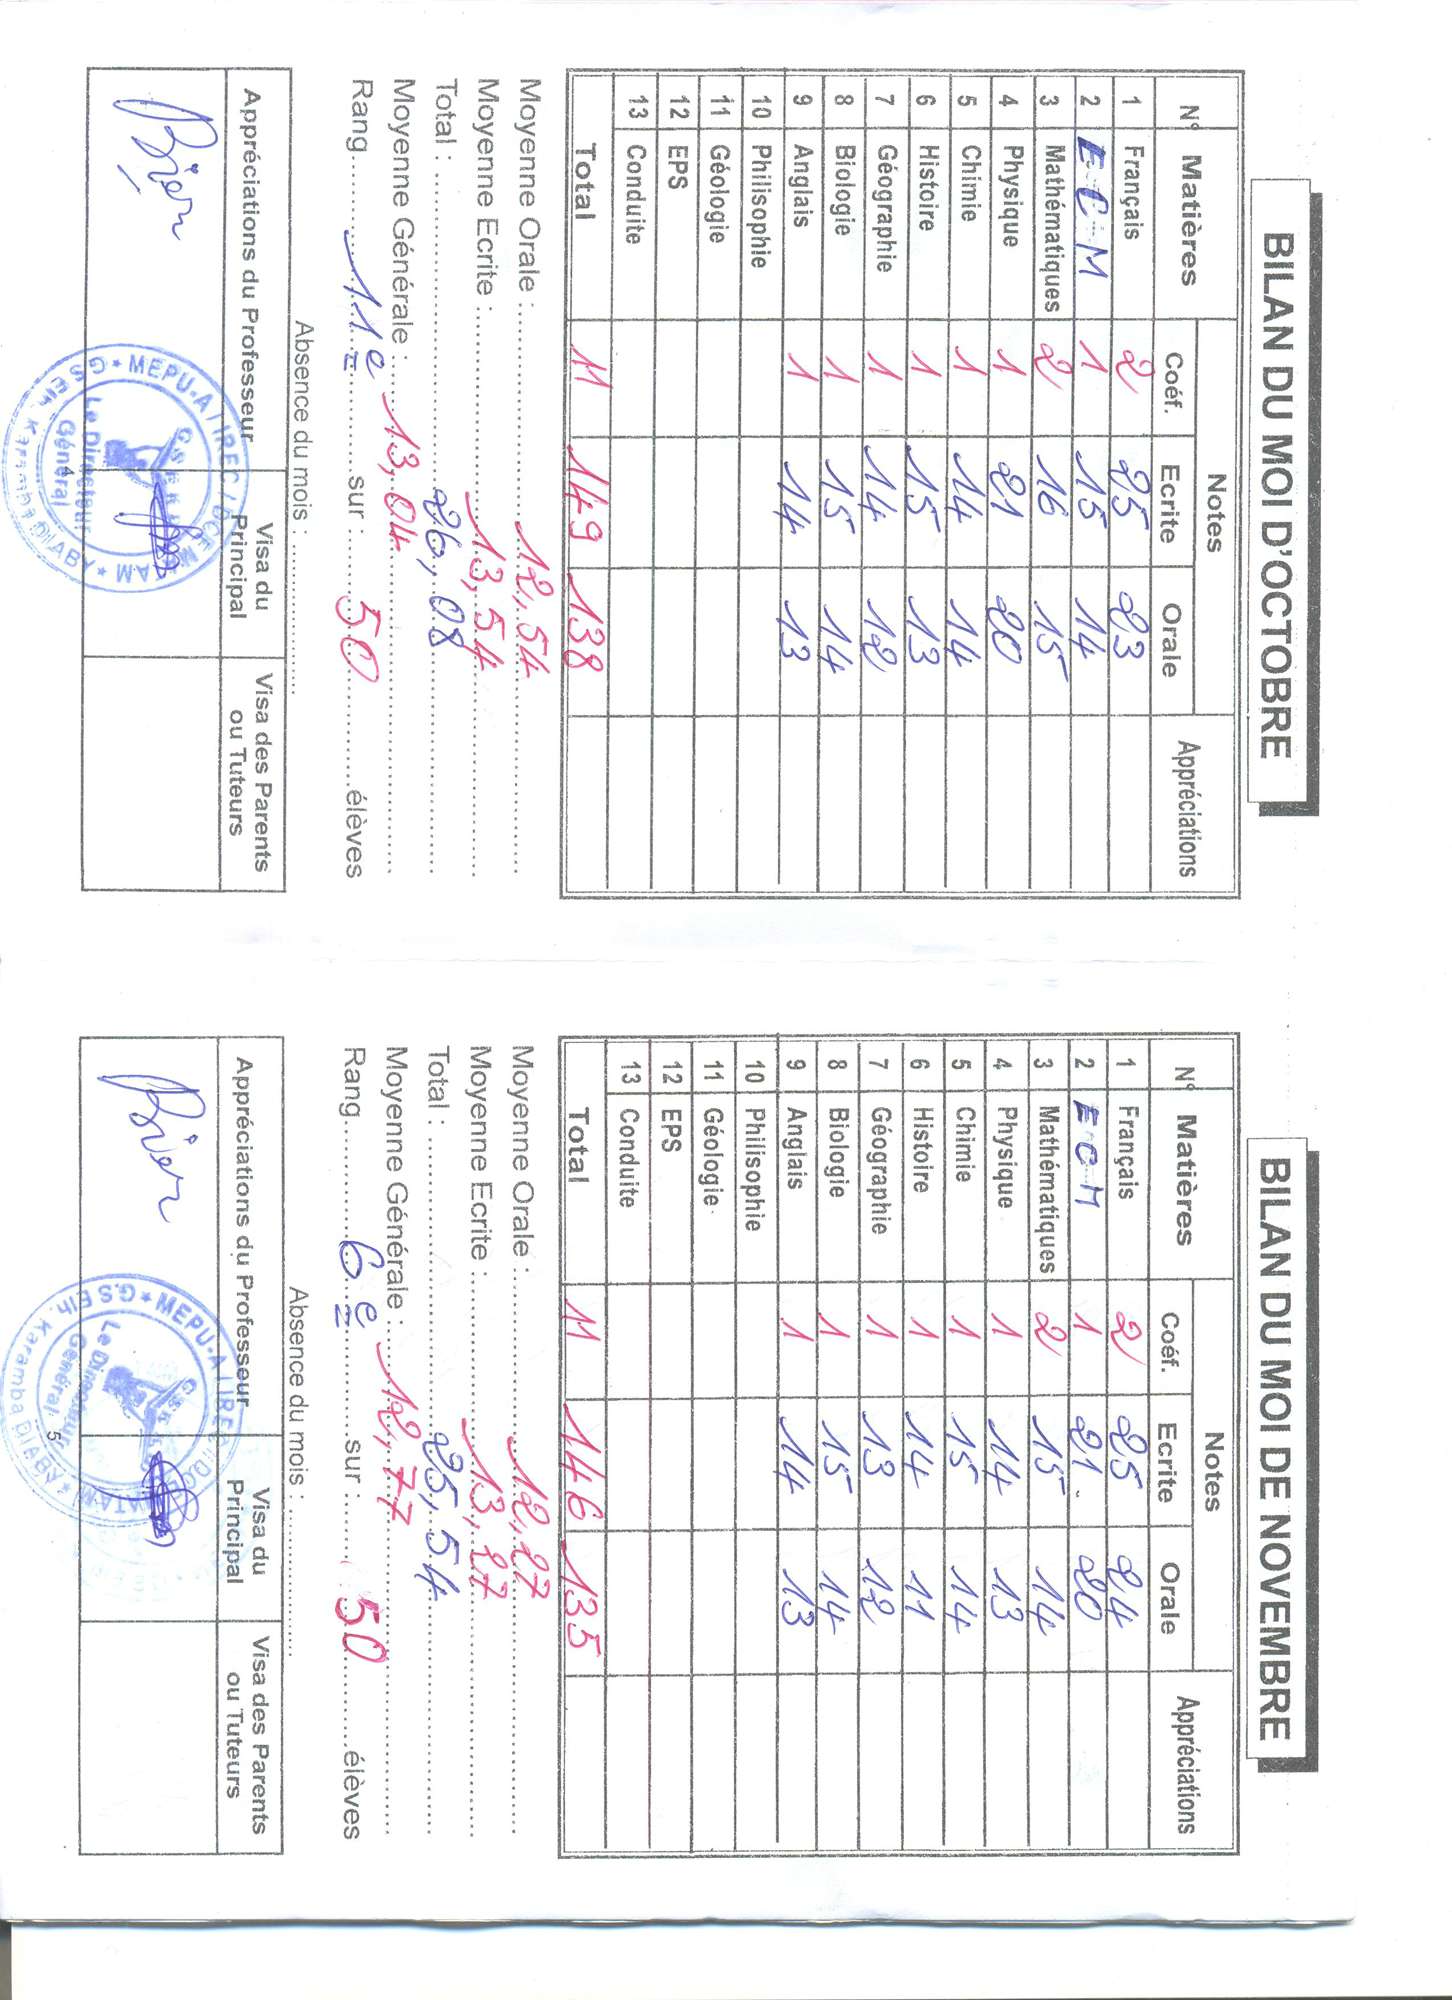 BILAN DU MOI D'OCTOBRE
N° Matières Notes Appréciations
Coéf. Ecrite Orale
1 Français 2 25 23
2 E C M 1 15 14
3 Mathématiques 2 16 15
4 Physique 1 21 20
5 Chimie 1 14 14
6 Histoire 1 15 13
7 Géographie 1 14 12
8 Biologie 1 15 14
9 Anglais 1 14 13
10 Philisophie
11 Géologie
12 EPS
13 Conduite
Total 11 149 138
Moyenne Orale : 12,54
Moyenne Ecrite : 13,54
Total : 26,08
Moyenne Générale : 13,04
Rang 11e sur : 50 élèves
Absence du mois :
Appréciations du Professeur Visa du Principal Visa des Parents ou Tuteurs
Bien
MEPU-A / IREC / DCE MATAM
G S Elh. Karamba DIABY
Le Directeur
Général
4
BILAN DU MOI DE NOVEMBRE
N° Matières Notes Appréciations
Coéf. Ecrite Orale
1 Français 2 25 24
2 E C M 1 21 20
3 Mathématiques 2 15 14
4 Physique 1 14 13
5 Chimie 1 15 14
6 Histoire 1 14 11
7 Géographie 1 13 12
8 Biologie 1 15 14
9 Anglais 1 14 13
10 Philisophie
11 Géologie
12 EPS
13 Conduite
Total 11 146 135
Moyenne Orale : 12,27
Moyenne Ecrite : 13,27
Total : 25,54
Moyenne Générale : 12,77
Rang 6e sur : 50 élèves
Absence du mois :
Appréciations du Professeur Visa du Principal Visa des Parents ou Tuteurs
Bien
MEPU-A / IREC / DCE MATAM
G S Elh. Karamba DIABY
Le Directeur
Général
5